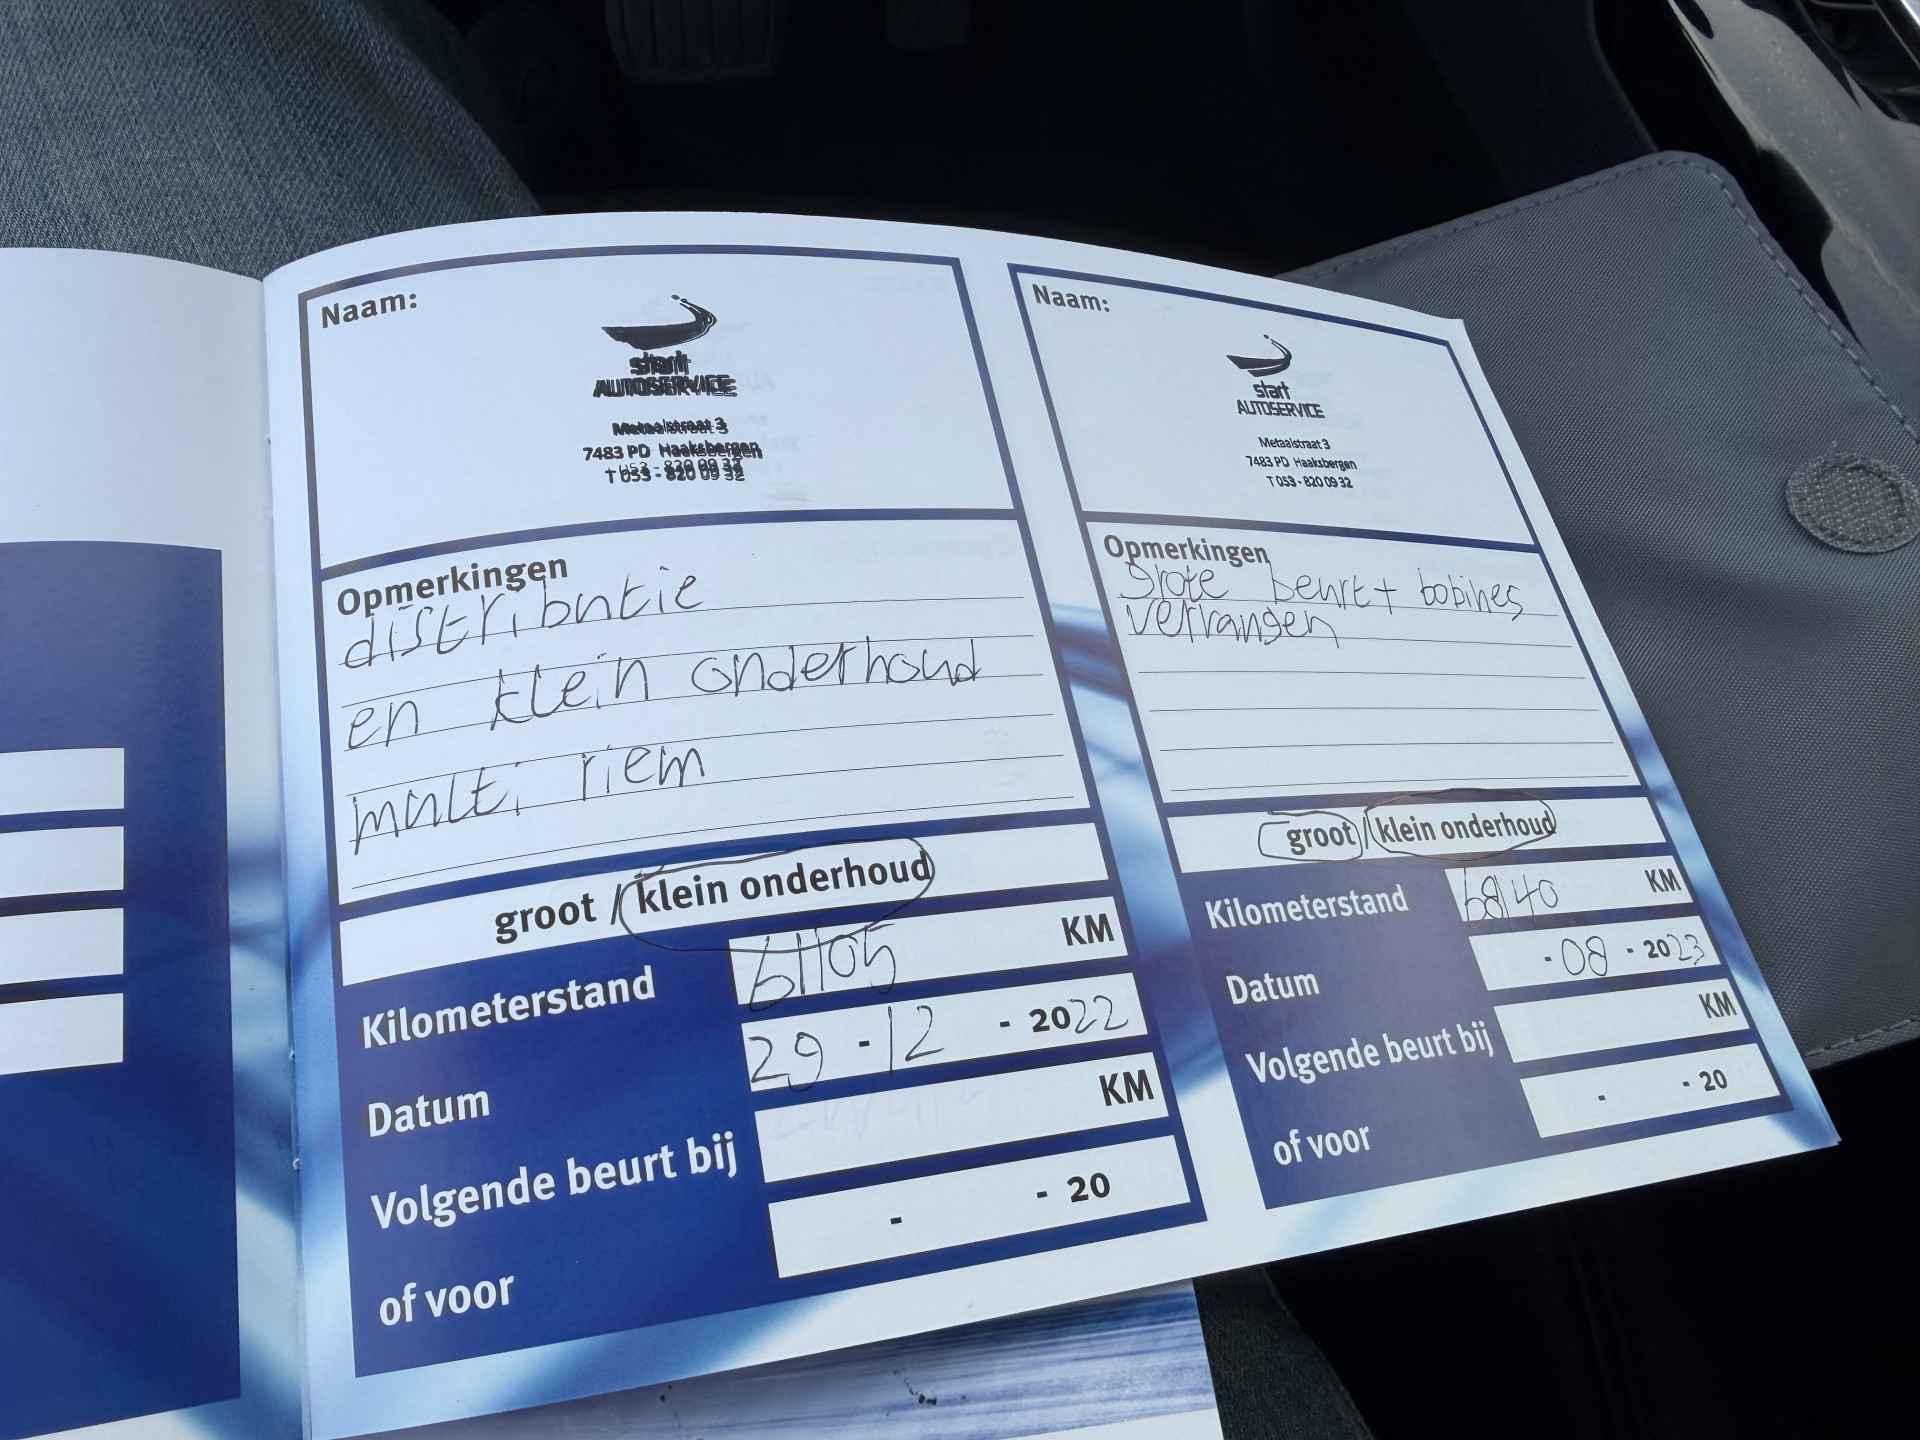 Naam:
start
AUTOSERVICE
Metaalstraat 3
7483 PD Haaksbergen
T 053 - 820 09 32
Opmerkingen
distributie
en klein onderhoud
multi riem
groot / klein onderhoud
Kilometerstand 61105 KM
Datum 29 - 12 - 2022
Volgende beurt bij KM
of voor - - 20
Naam:
start
AUTOSERVICE
Metaalstraat 3
7483 PD Haaksbergen
T 053 - 820 09 32
Opmerkingen
Grote beurt + bobines
vervangen
groot / klein onderhoud
Kilometerstand 68140 KM
Datum - 08 - 2023
Volgende beurt bij KM
of voor - - 20